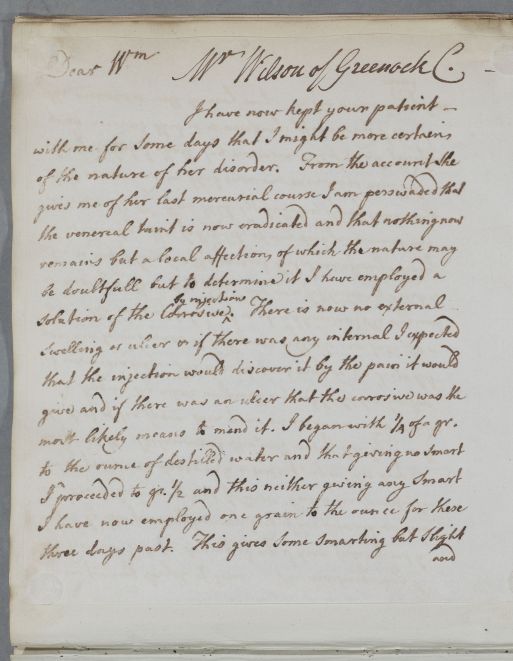 Dear Wm
Mr Wilson of Greenock C.
I have now kept your patient
with me for some days that I might be more certain
of the nature of her disorder. From the account she
gives me of her last mercurial course I am perswaded that
the venereal taint is now eradicated and that nothing now
remains but a local affection, of which the nature may
be doubtfull but to determine it I have employed a
by injection
solution of the Corrosive. There is now no external
swelling or ulcer or if there was any internal I expected
that the injection would discover it by the pain it would
give and if there was an ulcer that the corrosive was the
most likely means to mend it. I began with 1/4 of a gr.
to the ounce of destilled water and that giving no smart
I proceeded to gr. 1/2 and this neither giving any smart
I have now employed one grain to the ounce for these
three days past. This gives some smarting but slight
and